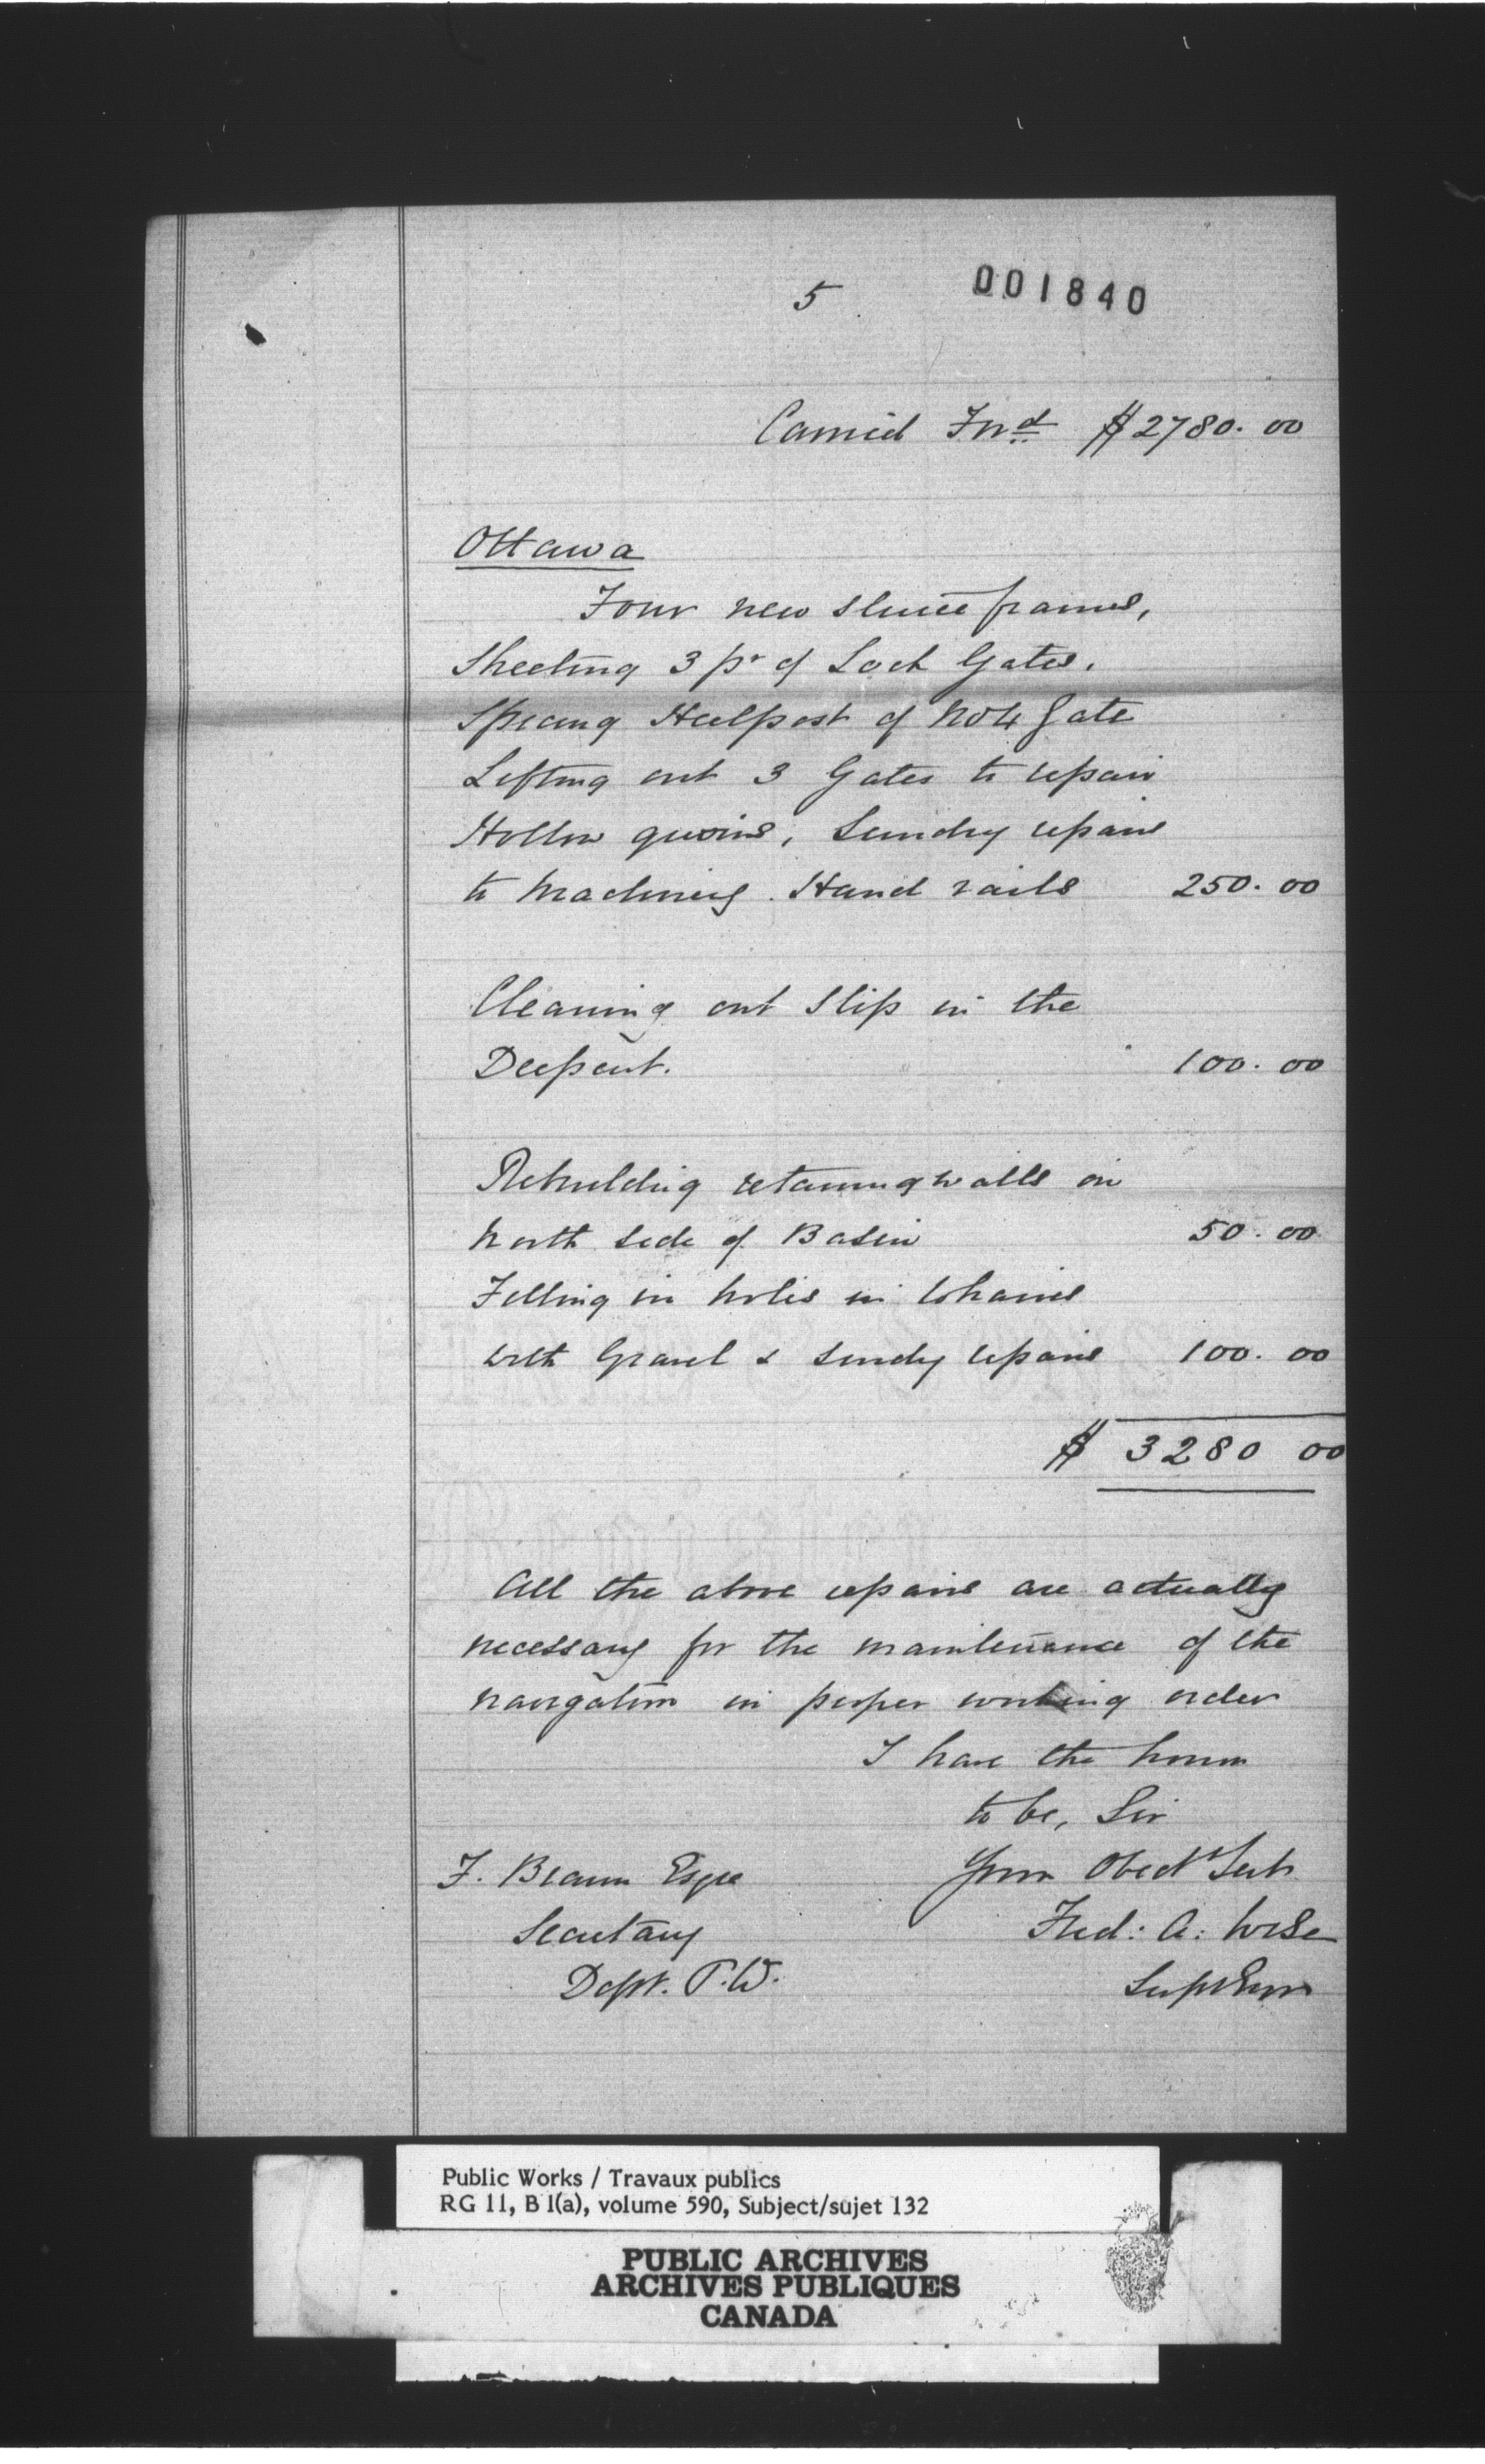 5
001840
Carried Frwd $2780.00
Ottawa
Four new sluice frames,
Sheeting 3 pr of Lock Gates.
Specing Heelpost of No 4 Gate
Lifting out 3 Gates to repair
Hollow quoins, Sundry repairs
to Machinery. Hand rails 250.00
Cleaning out Slip in the
Deepcut. 100.00
Rebuilding retaining walls on
North side of Basin 50.00
Filling in holes in Wharves
with Gravel & sundry repairs 100.00
$ 3280 00
All the above repairs are actually
necessary for the maintenance of the
navigation in proper working order
I have the honor
to be, Sir
F. Braun Esqre Your Obedt Servt
Secretary Fred: A: Wise
Dept. P.W. SuptEngr
Public Works / Travaux publics
RG 11, B 1(a), volume 590, Subject/sujet 132
PUBLIC ARCHIVES
ARCHIVES PUBLIQUES
CANADA